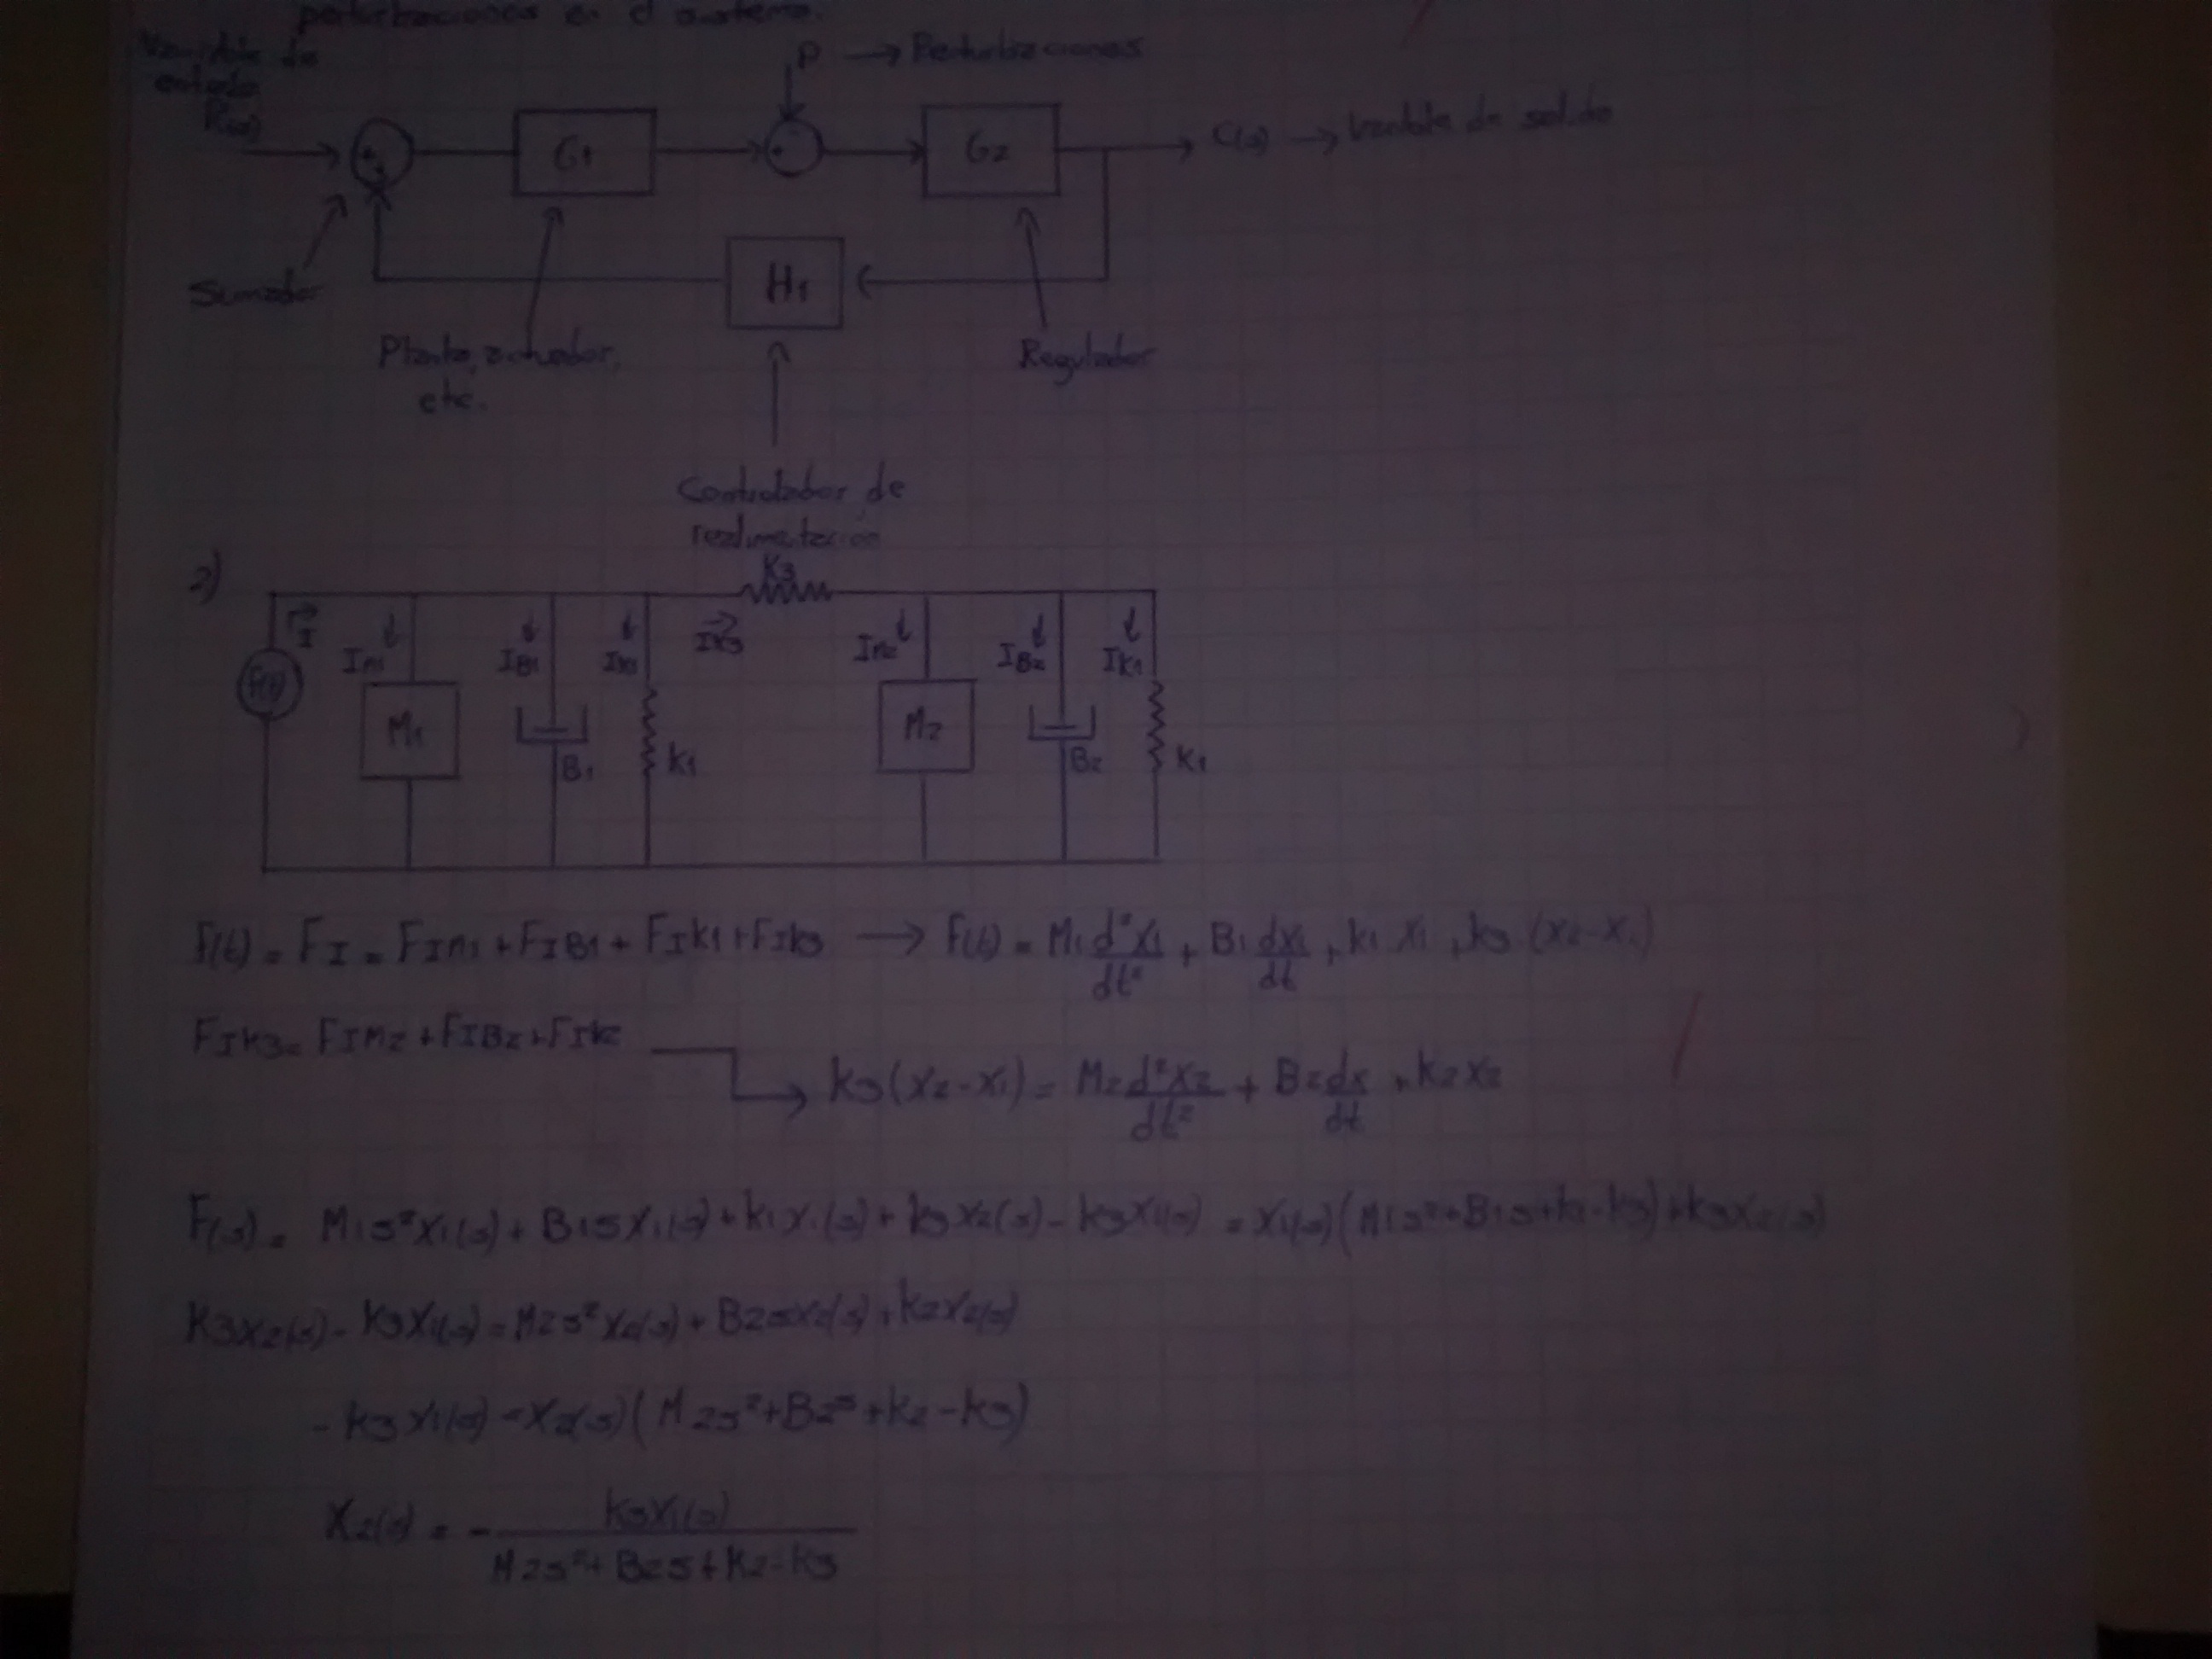 perturbaciones en el sistema.
Variable de
entrada
R(s)
P → Perturbaciones
G1
G2
C(s) → Variable de salida
Sumador
H1
Planta, actuador,
etc.
Regulador
Controlador de
2)
K3
I
Im1
IB1
IK3
Im2
IB2
IK1
F(t)
M1
B1
K1
M2
B2
K1
F(t) = FI = FIm1 + FIB1 + FIk1 + FIk3 → F(t) = M1 d²x1/dt² + B1 dx1/dt + k1 x1 + k3 (x2-x1)
FIk3 = FIM2 + FIB2 + FIk2
k3 (x2-x1) = M2 d²x2/dt² + B2 dx/dt + k2 x2
F(s) = M1s²X1(s) + B1sX1(s) + k1X1(s) + k3X2(s) - k3X1(s) = X1(s) (M1s²+B1s+k1-k3)+k3X2(s)
K3X2(s) - K3X1(s) = M2s²X2(s) + B2sX2(s) + K2X2(s)
- k3X1(s) = X2(s) (M2s²+B2s+k2-k3)
X2(s) = - k3X1(s) / M2s²+B2s+k2-k3